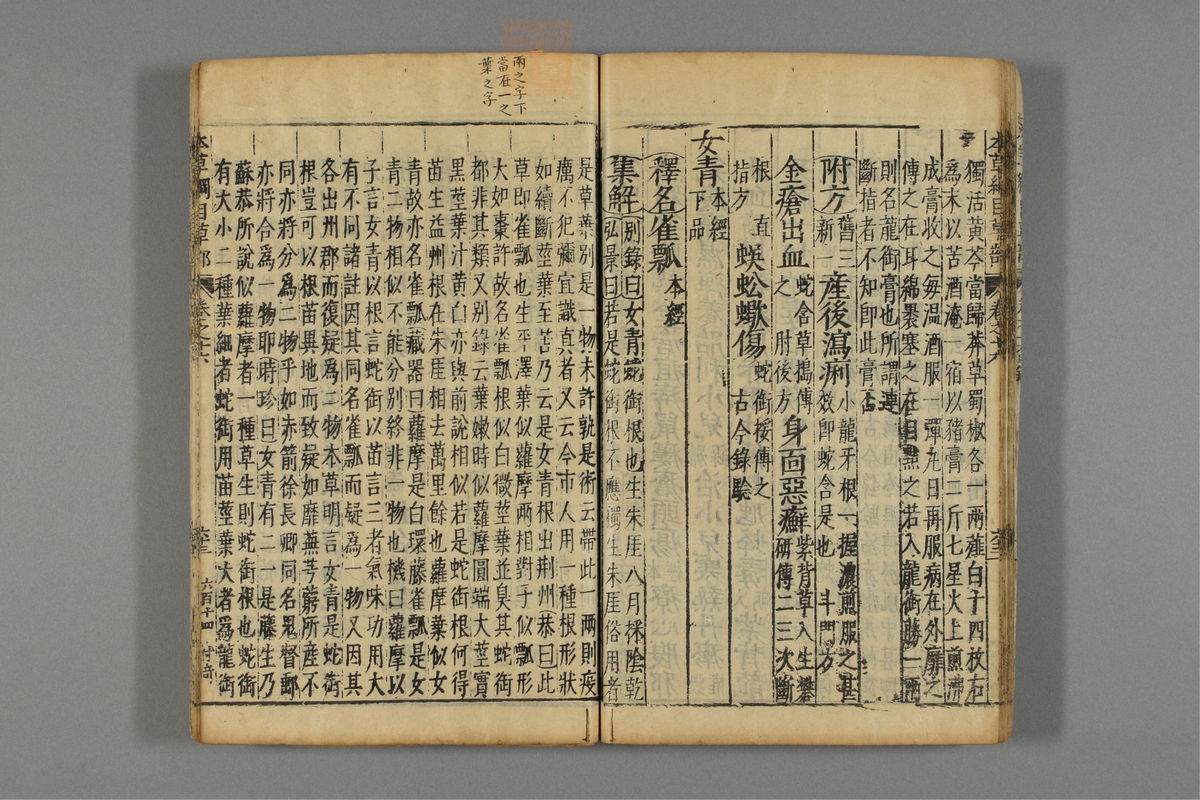 獨活黃芩當歸莽草蜀椒各一兩薤白十四枚右
爲末以苦酒淹一宿以猪膏二斤七星火上煎沸
成膏收之每温酒服一彈丸日再服病在外摩之
傳之在耳綿裹塞之在目點之若入龍銜勝一兩
則名龍銜膏也所謂連
斷指者不知即此膏否
附方舊三新一產後瀉痢小龍牙根一握濃煎服之甚效即蛇含是也 斗門方
金瘡出血蛇含草搗傳之 肘後方身面惡癬紫背草入生礬研傳二三次斷
根 直指方蜈蚣蠍傷蛇銜挼傅之 古今錄驗
女青本經下品
釋名雀瓢本經
集解別錄曰女青蛇銜根也生朱厓八月採陰乾
弘景曰若是蛇銜根不應獨生朱厓俗用者
是草葉別是一物未許孰是術云帶此一兩則疫
癘不犯彌宜識真者又云今市人用一種根形狀
如續斷莖葉至苦乃云是女青根出荆州恭曰此
草即雀瓢也生平澤葉似蘿摩兩相對子似瓢形
大如棗許故名雀瓢根似白薇莖葉並臭其蛇銜
都非其類又別錄云葉嫩時似蘿摩圓端大莖實
黑莖葉汁黃白亦與前說相似若是蛇銜根何得
苗生益州根在朱厓相去萬里餘也蘿摩葉似女
青故亦名雀瓢藏器曰蘿摩是白環藤雀瓢是女
青二物相似不能分別終非一物也機曰蘿摩以
子言女青以根言蛇銜以苗言三者氣味功用大
有不同諸註因其同名雀瓢而疑爲一物又因其
各出州郡而復疑爲二物本草明言女青是蛇銜
根豈可以根苗異地而致疑如靡蕪芎藭所產不
同亦將分爲二物乎如赤箭徐長卿同名鬼督郵
亦將合爲一物耶時珍曰女青有二一是藤生乃
蘇恭所說似蘿摩者一種草生則蛇銜根也蛇銜
有大小二種葉細者蛇銜用苗莖葉大者爲龍銜
本草綱目草部 卷之十六
六百十四
兩之字下
當在一之
葉之字